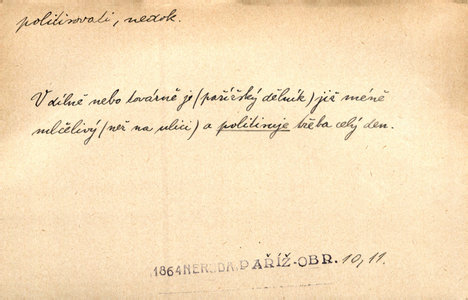 politisovati, nedok.
V dílně nebo továrně je (pařížský dělník) již méně
mlčelivý (než na ulici) a politisuje třeba celý den.
1864 NERUDA, PAŘÍŽ-OBR. 10, 11.